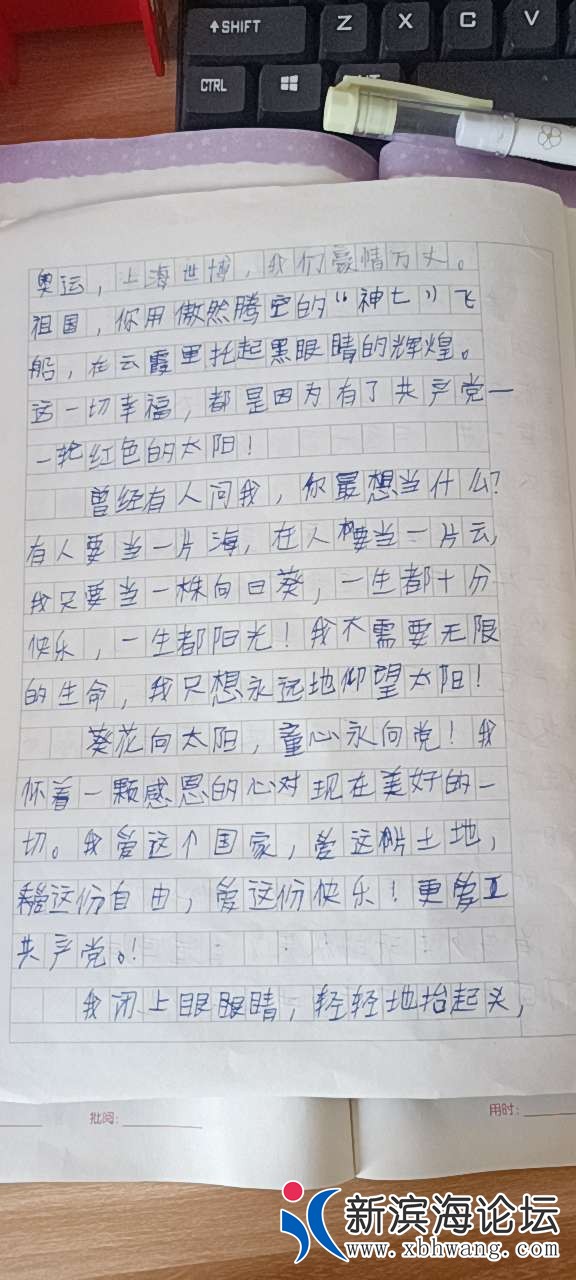 SHIFT
Z
X
C
V
CTRL
奥运，上海世博，我们豪情万丈。
祖国，你用傲然腾空的“神七”飞
船，在云霞里托起黑眼睛的辉煌。
这一切幸福，都是因为有了共产党一
一轮红色的太阳！
曾经有人问我，你最想当什么？
有人要当一片海，在人要当一片云，
我只要当一株向日葵，一生都十分
快乐，一生都阳光！我不需要无限
的生命，我只想永远地仰望太阳！
葵花向太阳，童心永向党！我
怀着一颗感恩的心对现在美好的一
切。我爱这个国家，爱这片土地，
爱这份自由，爱这份快乐！更爱
共产党。！
我闭上眼眼睛，轻轻地抬起头，
批阅：
用时：
新滨海论坛
www.xbhwang.com